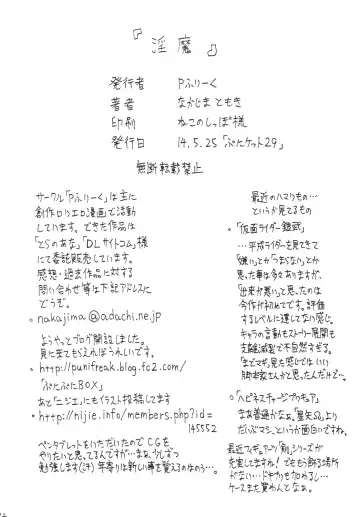 『淫魔』
発行者 Pふりーく
著者 なかじまともき
印刷 ねこのしっぽ様
発行日 14.5.25「ぷにケット29」
無断転載禁止
サークル「Pふりーく」は主に
創作ロリエロ漫画で活動
しています。できた作品は
「とらのあな」「DLサイトコム」様
にて委託販売しています。
感想・過去作品に対する
問い合わせ等は下記アドレスに
どうぞ。
○nakajima@adachi.ne.jp
ようやっとブログ開設しました。
見に来てもらえればうれしいです。
○http://punifreak.blog.fc2.com/
「ぷにぷにBOX」
あと「ニジエ」にもイラスト投稿してます
○http://nijie.info/members.php?id=
145552
ペンタブレットをいただいたのでCGを
やりたいと思ってるんですが…まぁ、少しずつ
勉強します(汗)年寄りは新しい事を覚えるのはのぅ…。
最近のハマりもの…
というか見てるもの
○「仮面ライダー鎧武」
…平成ライダーを見てきて
「嫌い」とか「つまらない」とか
思った事は多々ありますが、
「出来が悪い」と思ったのは
今作が初めてです。評価
するレベルに達してない感じ。
キャラの言動もストーリー展開も
支離滅裂で不自然すぎる。
「まどマギ」見た感じではいい
脚本家さんかと思ったんだけど…。
○「ハピネスチャージプリキュア」
まあ普通かなぁ。「聖矢Ω」より
だいぶマシ、というか面白いですなぁ。
最近フィギュアーツ「剣」シリーズが
充実してますね!でももう飾る場所
がない…ドキプリも加わるし…
ケースまた買わんとなぁ。